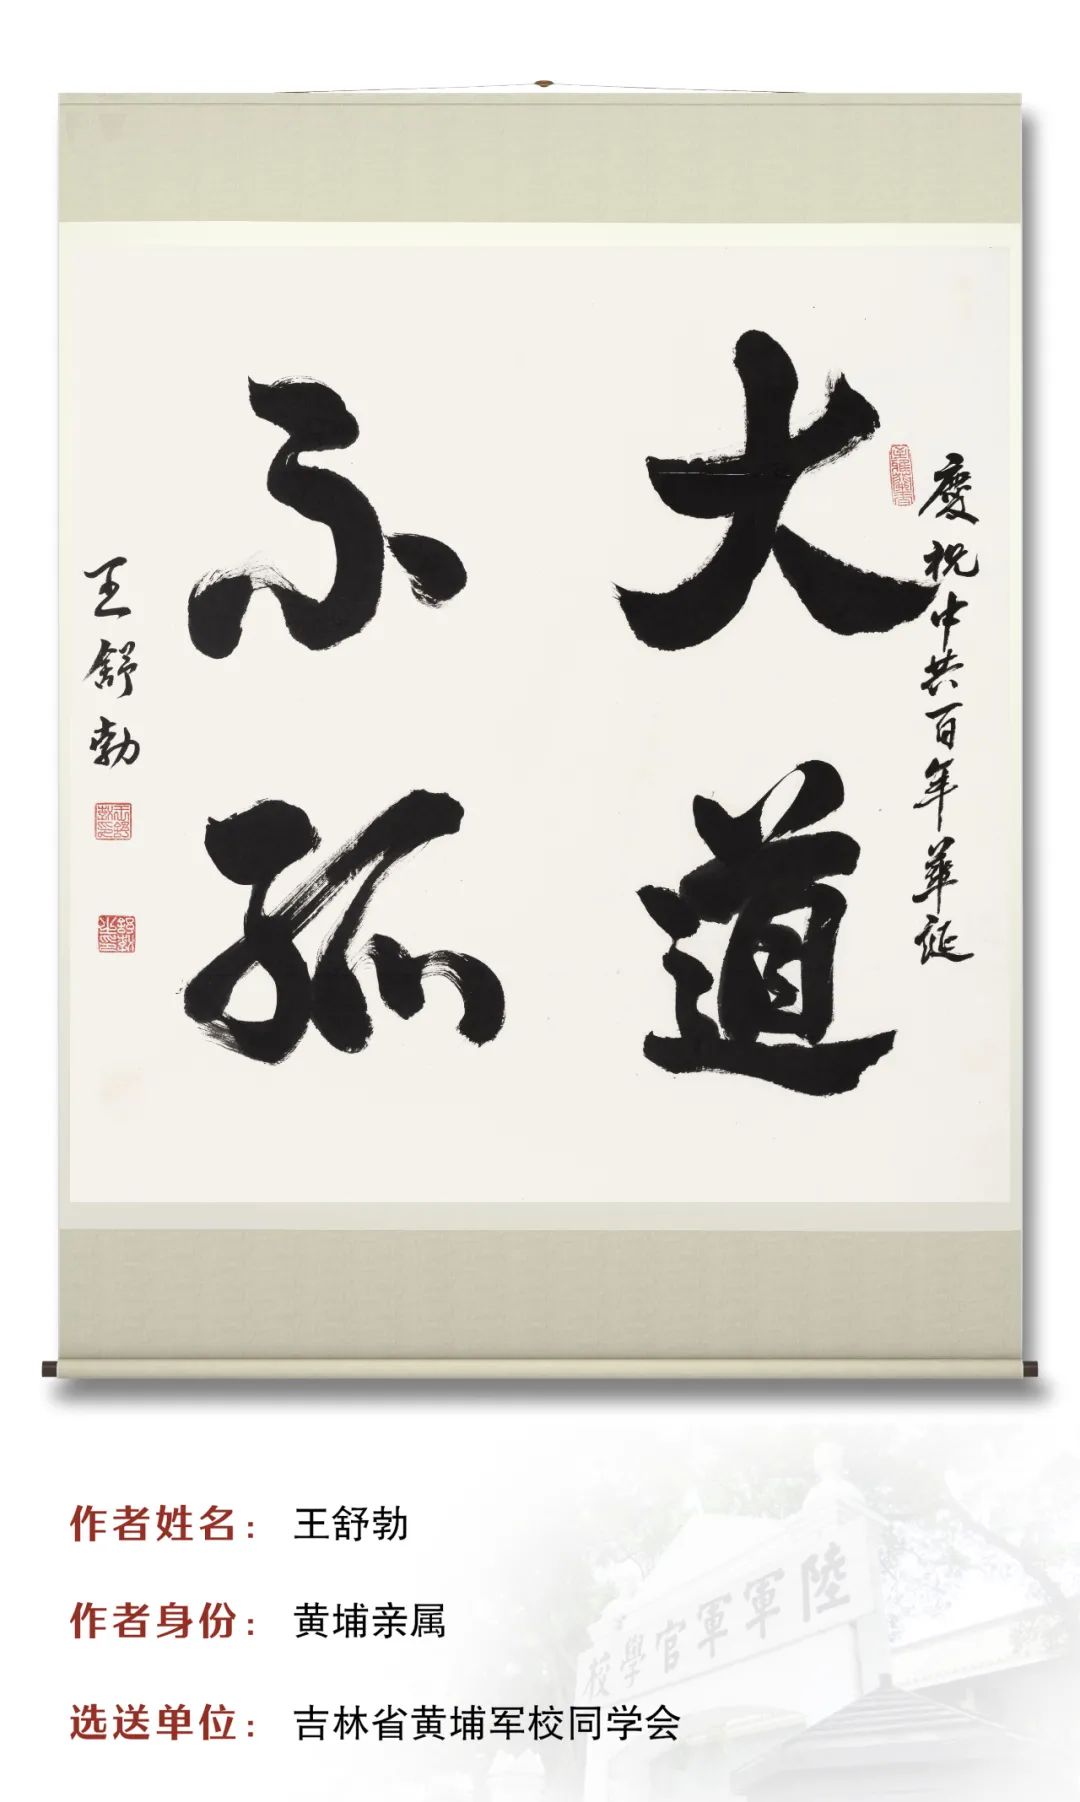 慶祝中共百年華誕
大道
不孤
王舒勃
作者姓名： 王舒勃
作者身份： 黄埔亲属
选送单位： 吉林省黄埔军校同学会
陸軍軍官學校